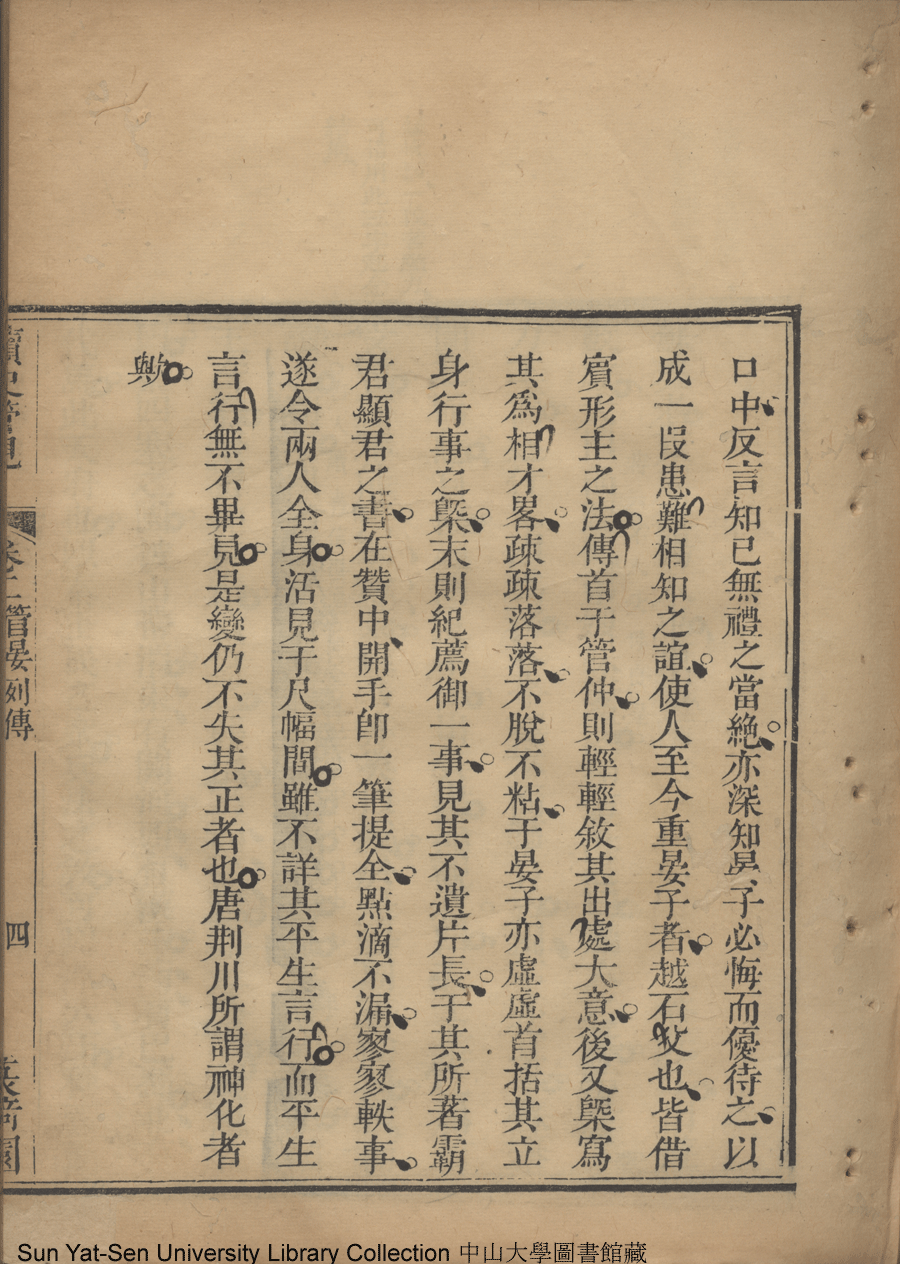 口中反言知己無禮之當絶亦深知晏子必悔而優待之以
成一段患難相知之誼使人至今重晏子者越石父也皆借
賓形主之法傳首于管仲則輕輕敘其出處大意後又槩寫
其爲相才畧疎疎落落不脫不粘于晏子亦虛虛首括其立
身行事之槩末則紀薦御一事見其不遺片長于其所著霸
君顯君之書在贊中開手卽一筆提全點滴不漏寥寥軼事
遂令兩人全身活見于尺幅間雖不詳其平生言行而平生
言行無不畢見是變仍不失其正者也唐荆川所謂神化者
歟
讀史管見
卷二管晏列傳
四
Sun Yat-Sen University Library Collection 中山大學圖書館藏